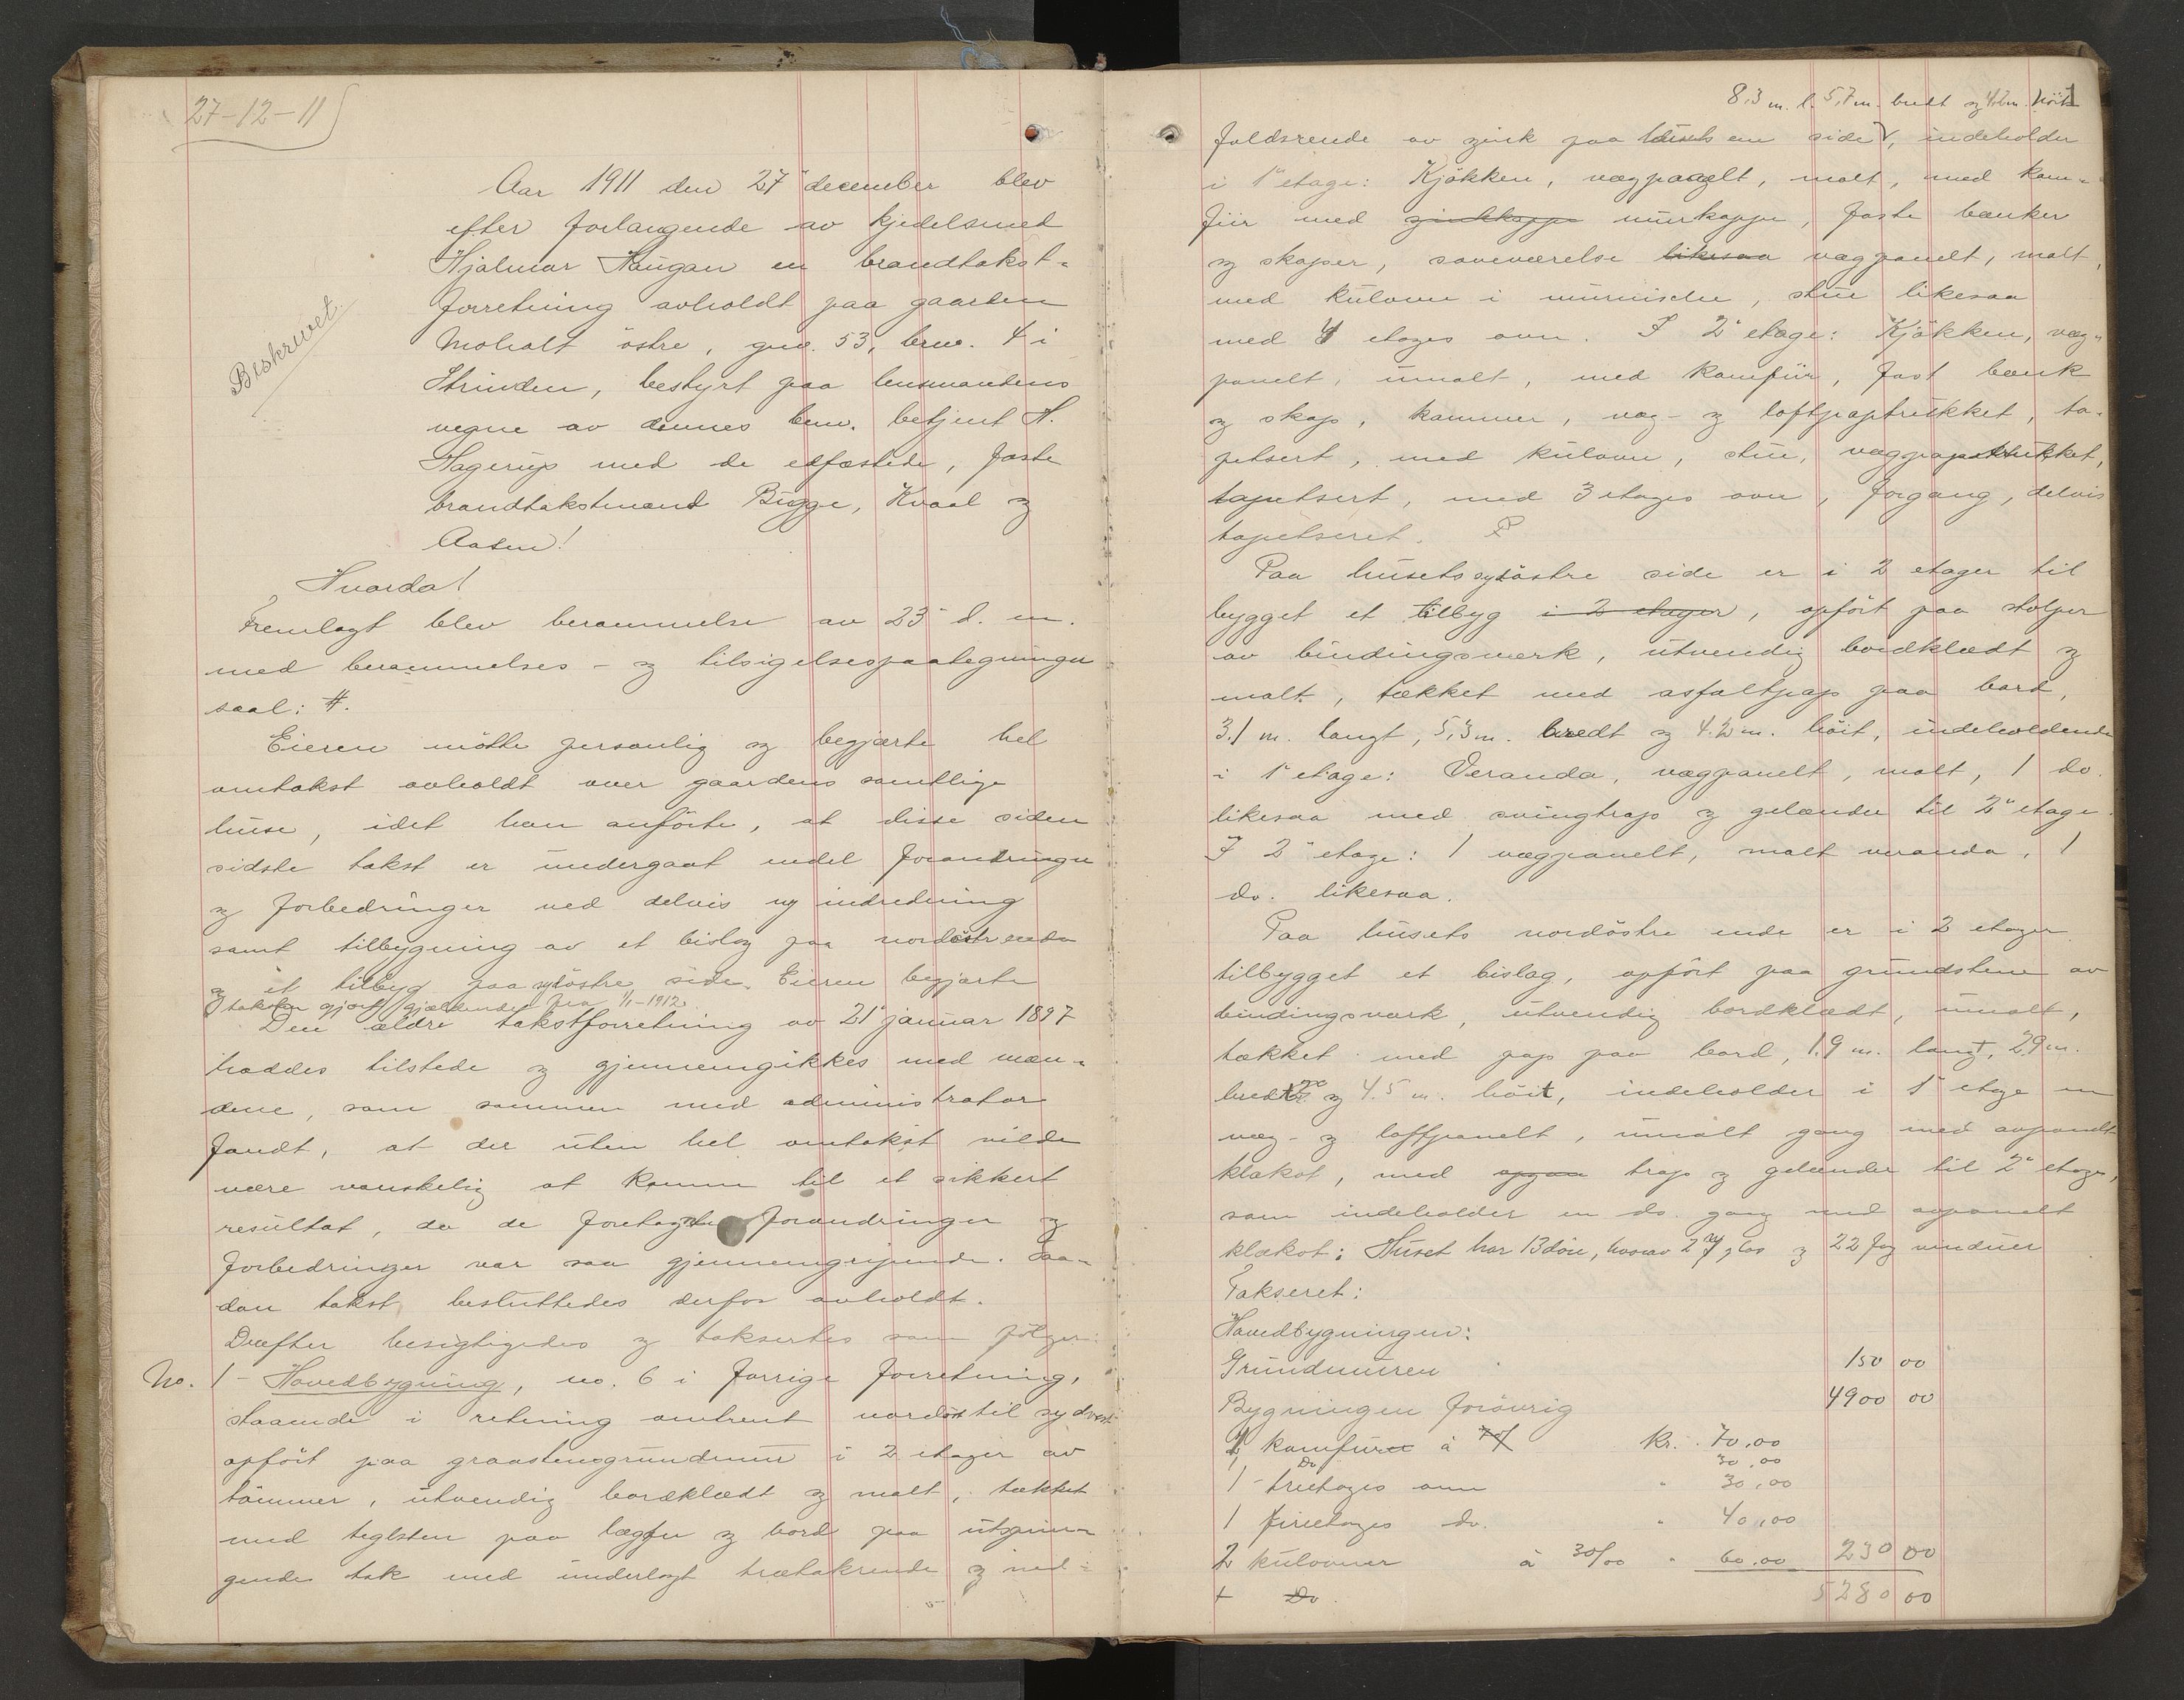 27-12-11
Aar 1911 den 27' december blev
efter forlangende av kjedelsmed
Hjalmar Haugan en brandtakst-
forretning avholdt paa gaarden
Moholt östre, gno. 53, bno. 4 i
Strinden, bestyrt paa lensmandens
vegne av dennes bem. betjent H.
Hagerup med de edfæstede, faste
brandtakstmænd Bugge, Kvaal og
Aasen!
Beskrevet
Hvorda!
Fremlagt blev berammelse av 23' d. m.
med berammelses- og tilsigelsespaategninger
saal: #.
Eieren mötte personlig og begjærte hel
omtakst avholdt over gaardens samtlige
huse, idet han anförte, at disse siden
sidste takst er undergaat endel forandringer
og forbedringer ved delvis ny indredning
samt tilbygning av et bislag paa nordöstre ende
og et tilbyg paa sydöstre side. Eieren begjærte
taksten gjort gjældende fra 1/1-1912.
Den ældre takstforretning av 21' januar 1897
haddes tilstede og gjennemgikkes med mæn-
dene, som sammen med administrator
fandt, at det uten hel omtakst vilde
være vanskelig at komme til et sikkert
resultat, da de foretagne forandringer og
forbedringer var saa gjennemgripende. Saa-
dan takst besluttedes derfor avholdt.
Derefter besigtigedes og taksertes som fölger:
No. 1 - Hovedbygning, no. 6 i forrige forretning,
staaende i retning omtrent nordöst til sydvest
opfört paa graastensgrundmur i 2 etager av
tömmer, utvendig bordklædt og malt, tækket
med teglsten paa lægter og bord paa utsprin-
gende tak med underlagt trætakrende og ned-
1
8,3 m. l. 5,7 m. bredt og 4,2 m. höit
faldsrende av zink paa husets ene side, indeholder
i 1' etage: Kjökken, vægpanelt, malt, med kom-
fur med zinkkappe murkappe, faste bænker
og skaper, soveværelse likesaa vægpanelt, malt,
med kulovn i murnische, stue likesaa
med 4 etages ovn. I 2' etage: Kjökken, væg-
panelt, umalt, med komfur, fast bænk
og skap, kammer, væg- og loftpaptrukket, ta-
petsert, med kulovn, stue, vægpaptrukket,
tapetsert, med 3 etages ovn, forgang, delvis
tapetseret.
Paa husets sydöstre side er i 2 etager til
bygget et tilbyg i 2 etager, opfört paa stolper
av bindingsverk, utvendig bordklædt og
malt, tækket med asfaltpap paa bord,
3.1 m. langt, 5,3 m. bredt og 4.2 m. höit, indeholdende
i 1' etage: Veranda, vægpanelt, malt, 1 do.
likesaa med svingtrap og gelænder til 2' etage.
I 2' etage: 1 vægpanelt, malt veranda, 1
do. likesaa.
Paa husets nordöstre ende er i 2 etager
tilbygget et bislag, opfört paa grundstene av
bindingsverk, utvendig bordklædt, umalt,
tækket med pap paa bord, 1.9 m. langt, 2.9 m.
bredt og 4.5 m. höit, indeholder i 1' etage en
væg- og loftpanelt, umalt gang med avpanelt
klokot, med opgaa trap og gelænder til 2' etage,
som indeholder en do. gang med avpanelt
klokot: Huset har 13 döre, hvorav 2 glas og 22 fag vinduer
Takseret:
Hovedbygningen:
Grundmuren 150 00
Bygningen forövrig 4900 00
1 komfur à kr. 70.00
1 Do 30.00
1 - treetages ovn " 30.00
1 fireetages do. " 40.00
2 kulovner à 30/00 " 60.00 230 00
1 Do 5280 00